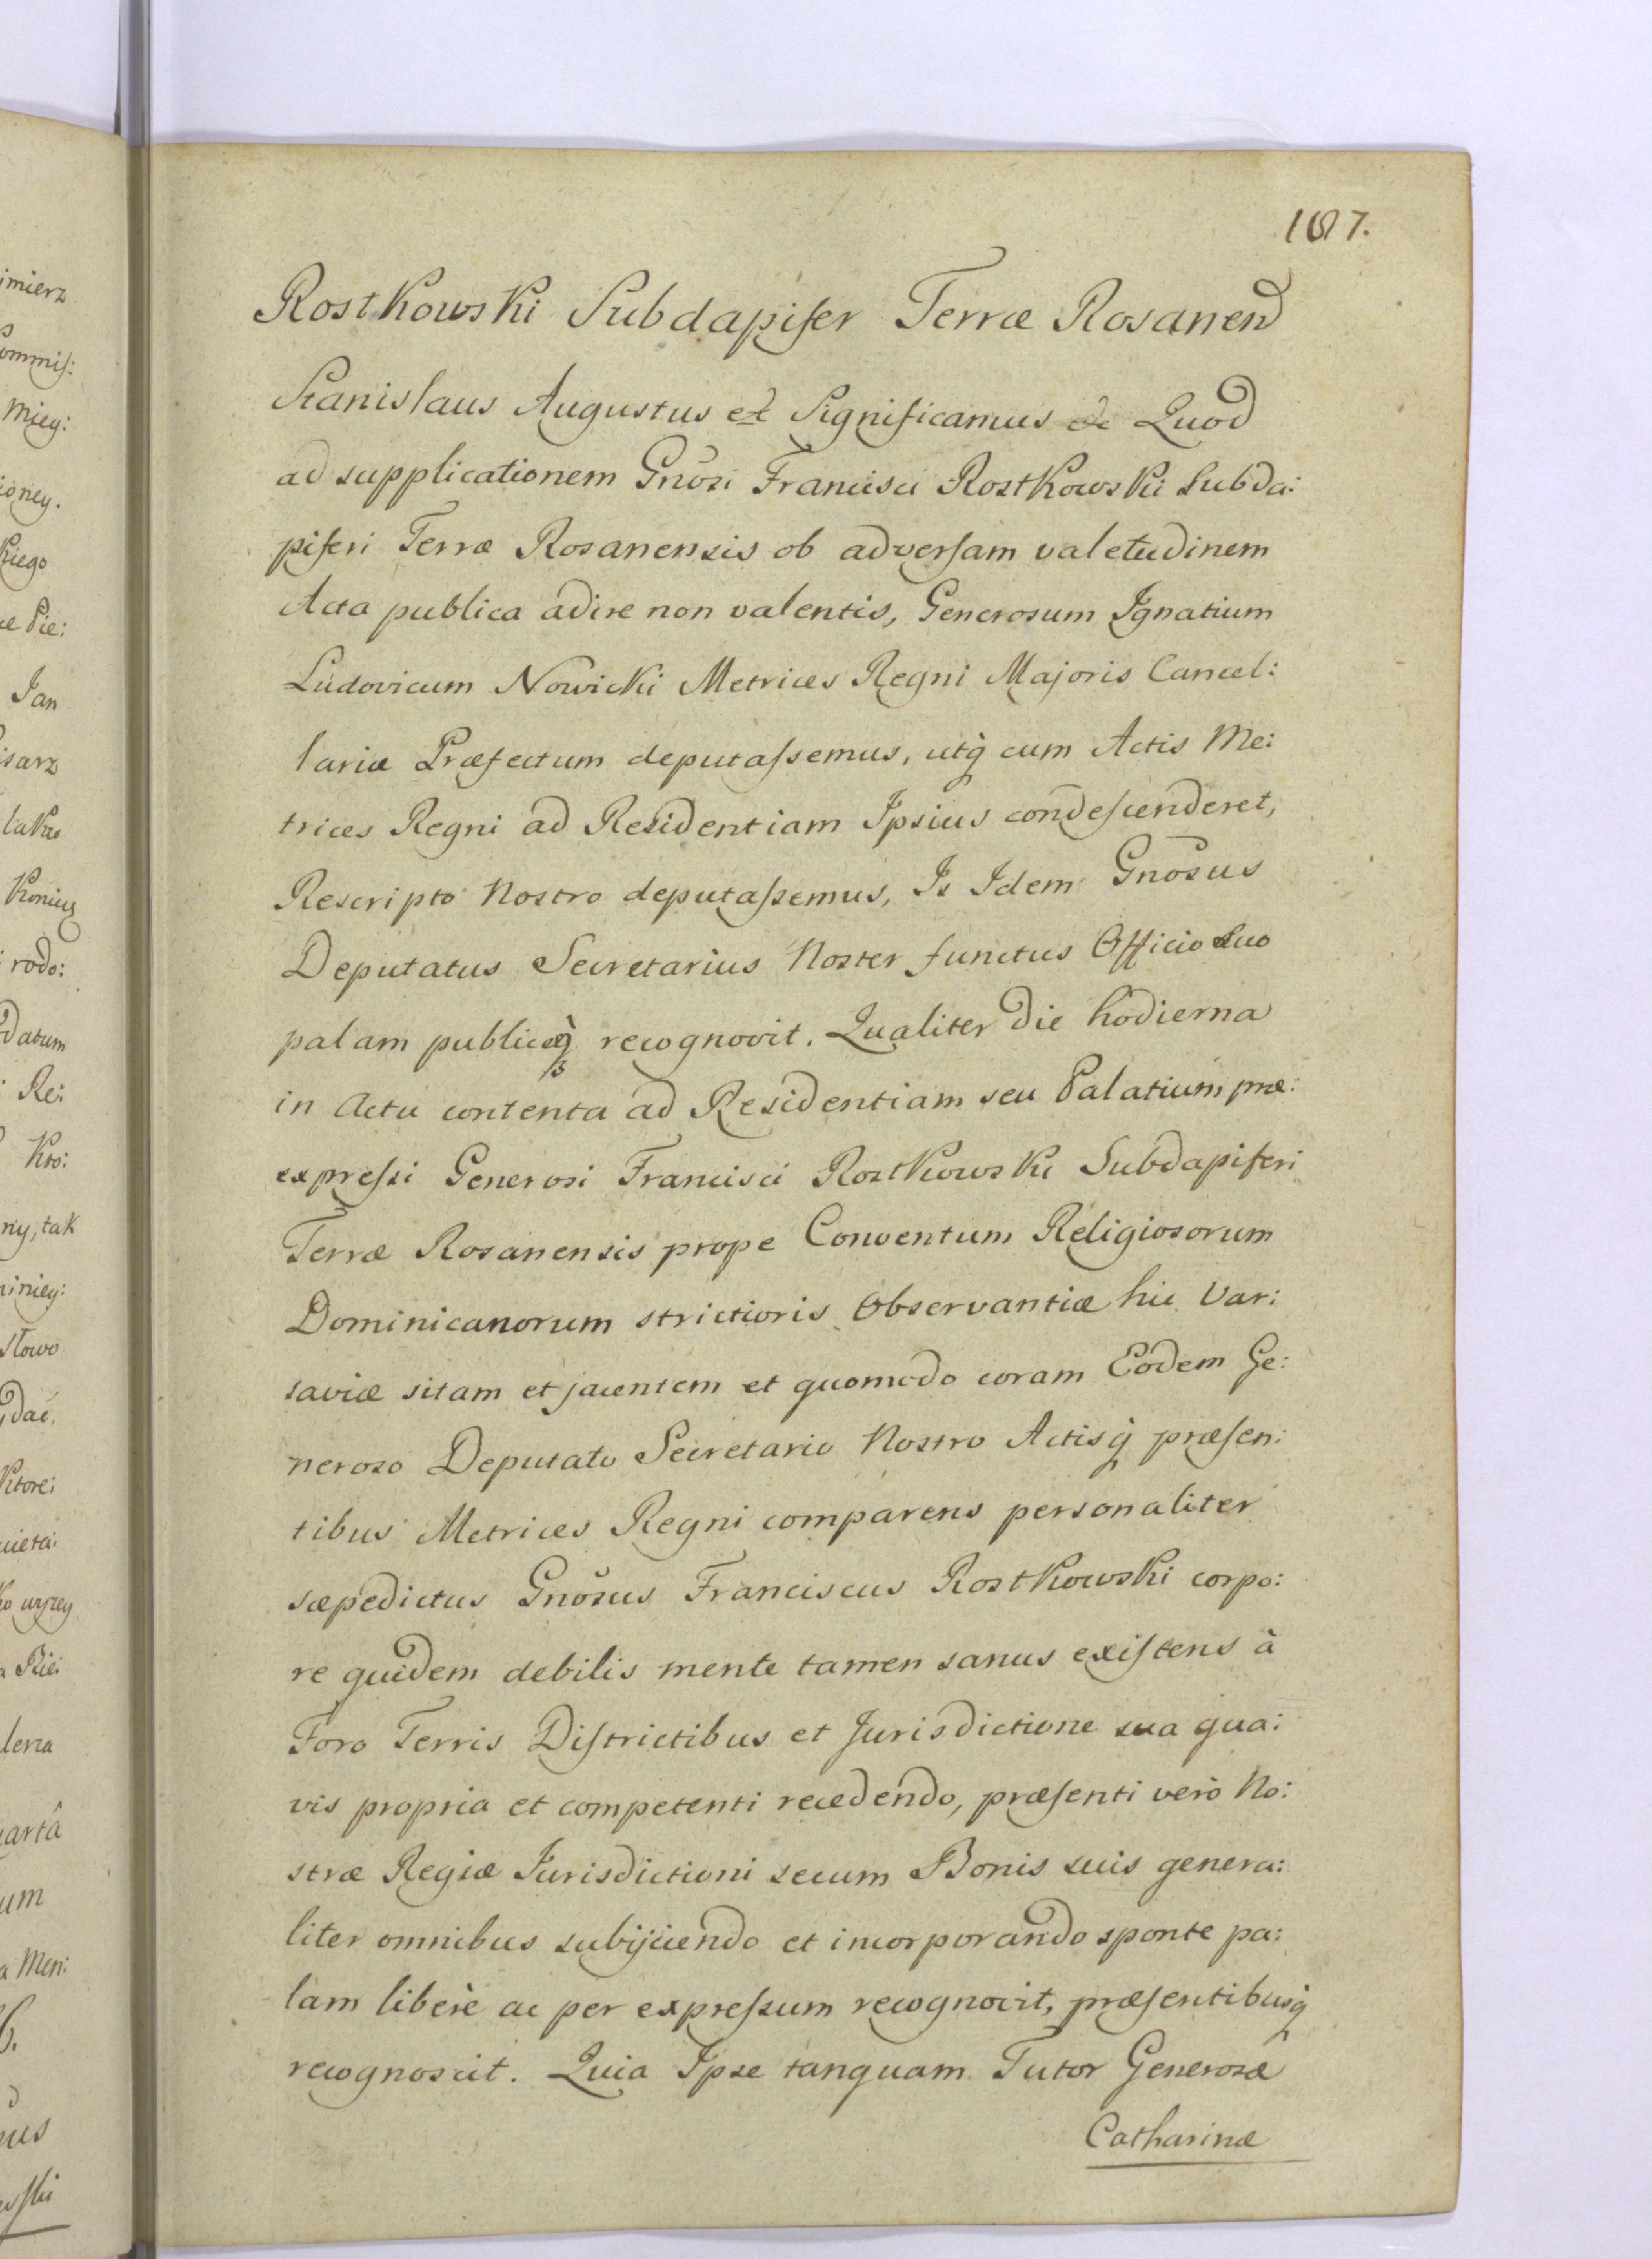 187.
Rostkowski Subdapifer Terræ Rosanen
Stanislaus Augustus et Significamus &c Quod
ad supplicationem Gnosi Francisci Rostkowski Subda:
piferi Terræ Rosanensis ob adversam valetudinem
Acta publica adire non valentis, Generosum Ignatium
Ludovicum Nowicki Metrices Regni Majoris Cancel:
lariæ Præfectum deputassemus, utq̀ cum Actis Me:
trices Regni ad Residentiam Ipsius condescenderet,
Rescripto Nostro deputassemus, Is Idem Gnosus
Deputatus Secretarius Noster functus Officio suo
palam publiceq̀ recognovit. Qualiter die hodierna
in Actu contenta ad Residentiam seu Palatium præ:
expressi Generosi Francisci Rostkowski Subdapiferi
Terræ Rosanensis prope Conventum Religiosorum
Dominicanorum strictioris Observantiæ hic Var:
saviæ sitam et jacentem et quomodo coram Eodem Ge:
neroso Deputato Secretario Nostro Actisq̀ præsen:
tibus Metrices Regni comparens personaliter
sæpedictus Gnosus Franciscus Rostkowski corpo:
re quidem debilis mente tamen sanus existens à
Foro Terris Districtibus et Jurisdictione sua qua:
vis propria et competenti recedendo, præsenti verò No:
stræ Regiæ Jurisdictioni secum Bonis suis genera:
liter omnibus subijciendo et incorporando sponte pa:
lam liberè ac per expressum recognovit, præsentibusq̀
recognoscit. Quia Ipse tanquam Tutor Generosæ
Catharinæ